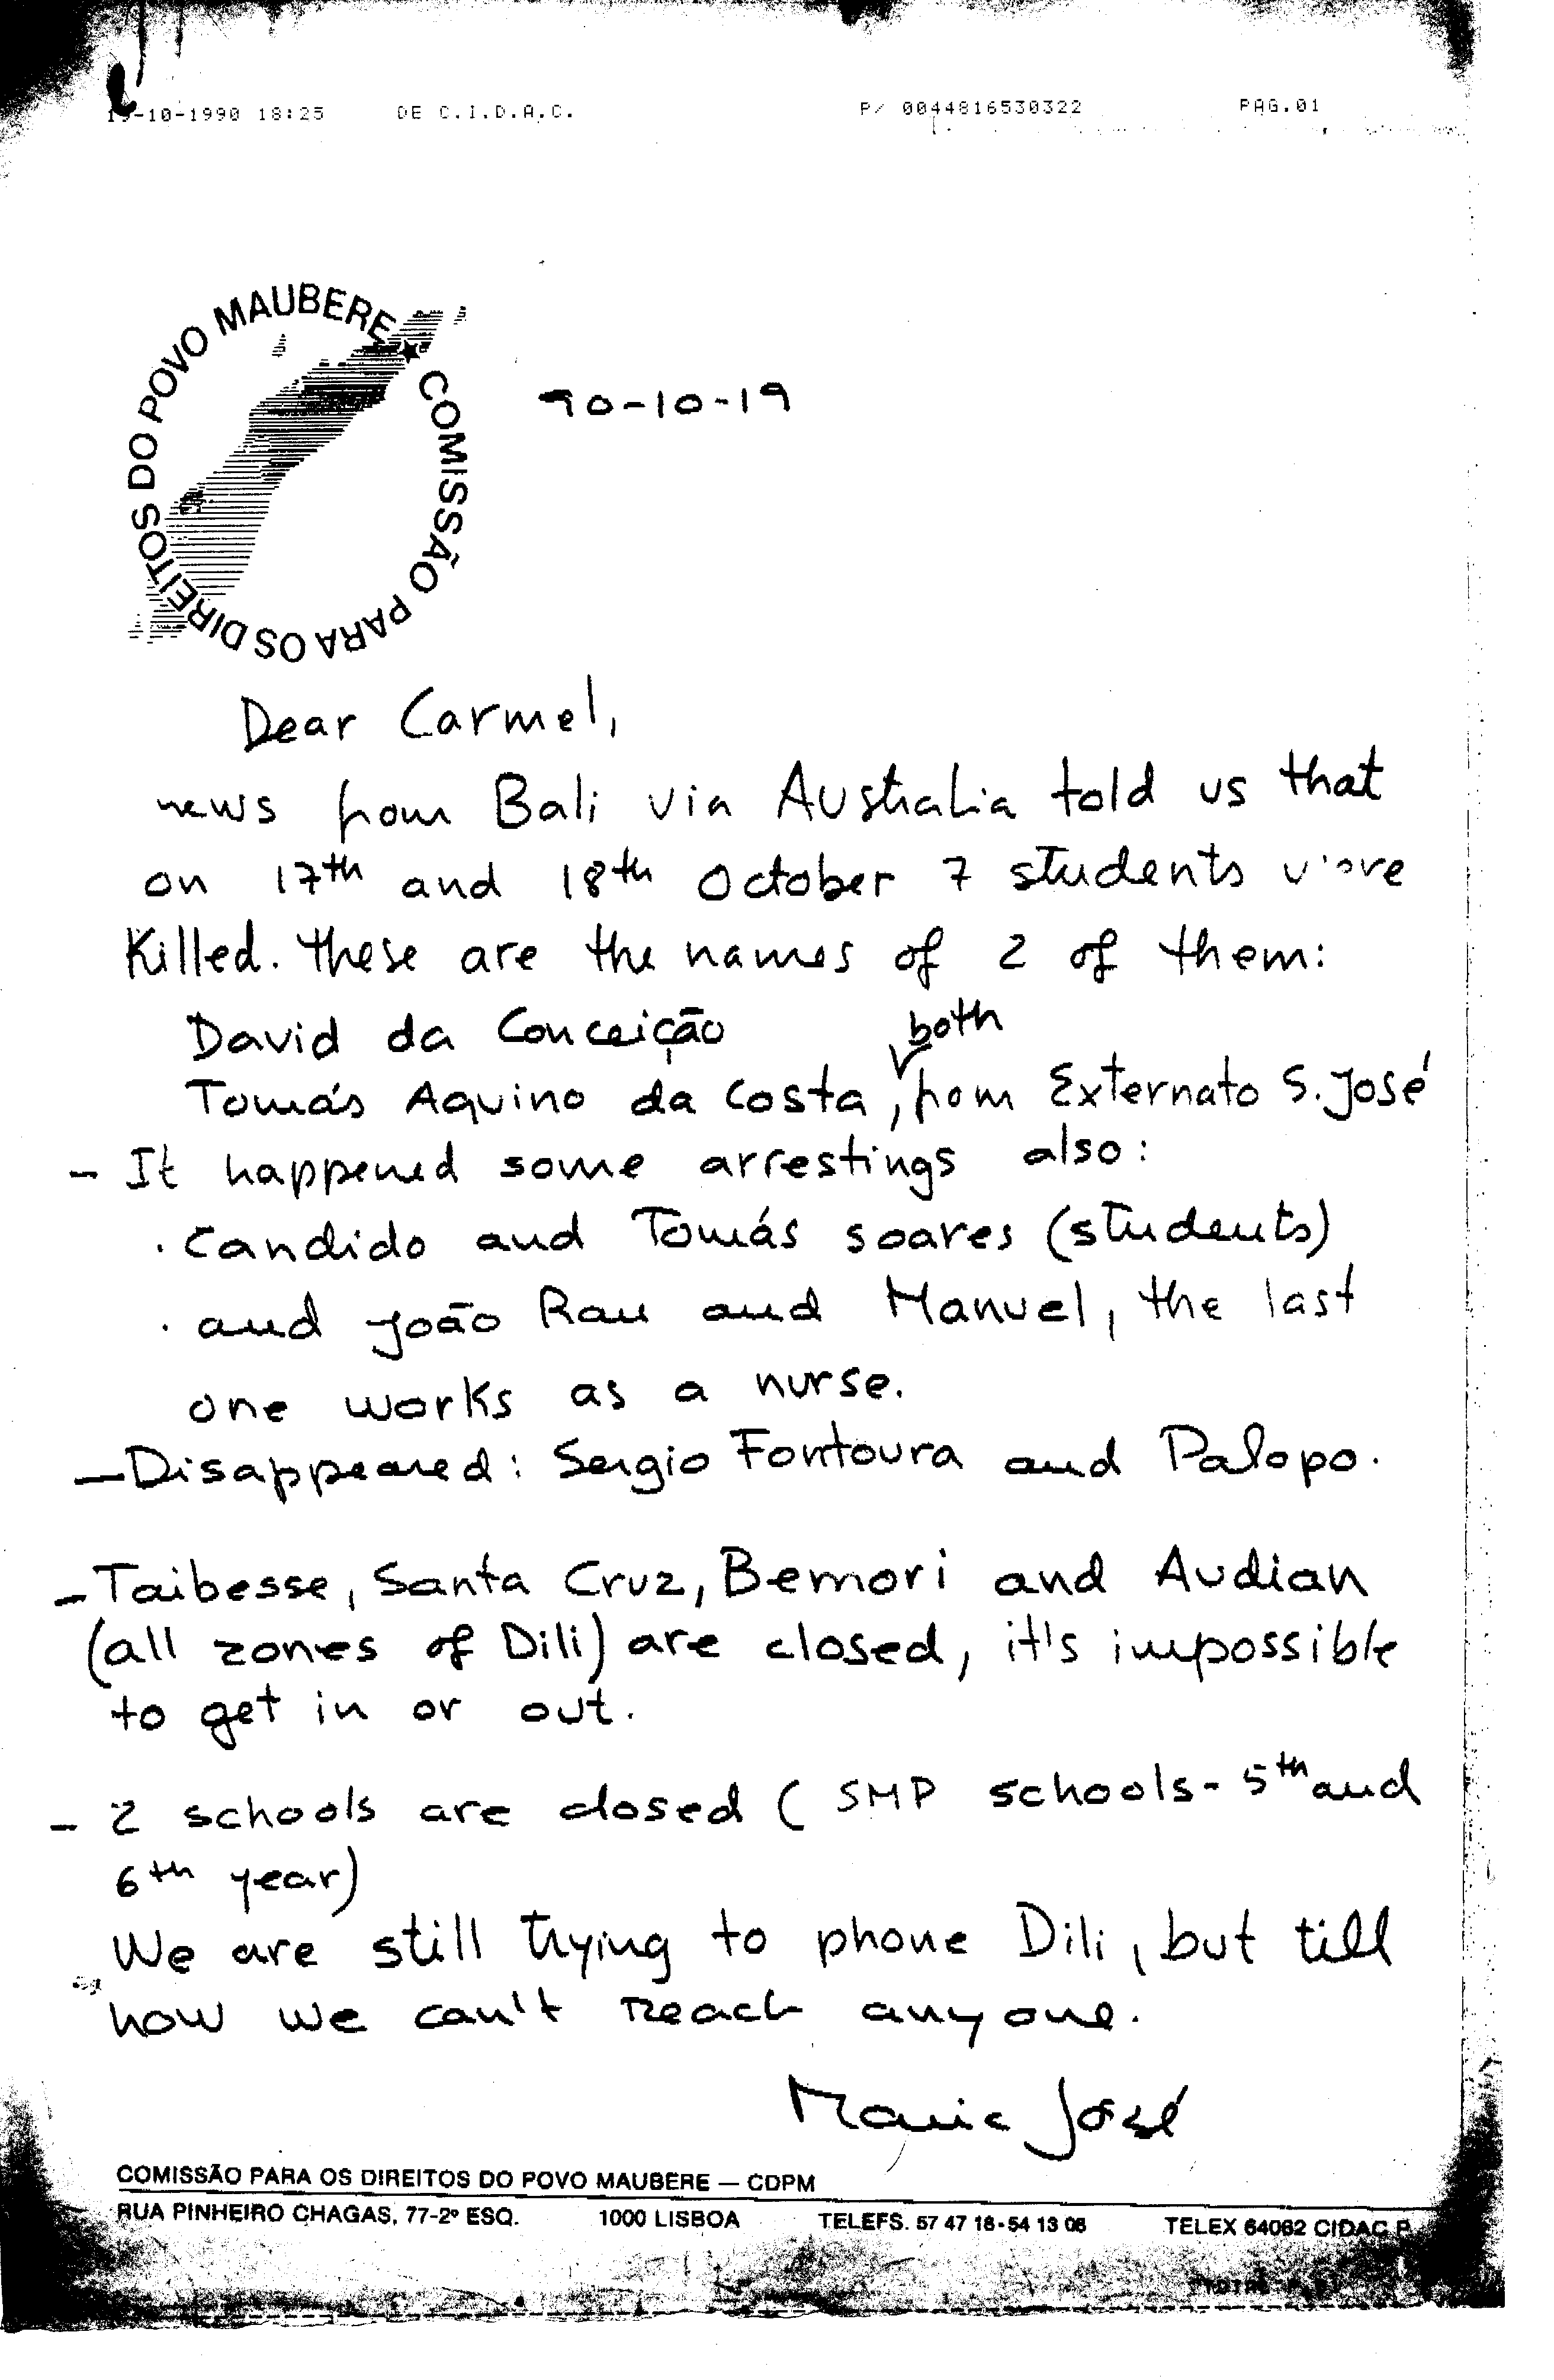 19-10-1990 18:25 DE C.I.D.A.C. P/ 0044816530322 PAG.01
COMISSÃO PARA OS DIREITOS DO POVO MAUBERE
90-10-19
Dear Carmel,
news from Bali via Australia told us that
on 17th and 18th October 7 students were
Killed. These are the names of 2 of them:
David da Conceição
both
Tomás Aquino da Costa, from Externato S. José
- It happened some arrestings also:
. Candido and Tomás Soares (students)
. and João Rau and Manuel, the last
one works as a nurse.
- Disappeared: Sergio Fontoura and Palopo.
- Taibesse, Santa Cruz, Bemori and Audian
(all zones of Dili) are closed, it's impossible
to get in or out.
- 2 schools are closed ( SMP schools - 5th and
6th year)
We are still trying to phone Dili, but till
now we can't reach anyone.
Maria José
COMISSÃO PARA OS DIREITOS DO POVO MAUBERE — CDPM
RUA PINHEIRO CHAGAS, 77-2º ESQ. 1000 LISBOA TELEFS. 57 47 18 - 54 13 06 TELEX 64062 CIDAC P